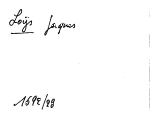 Loÿs Jacques
1592/98